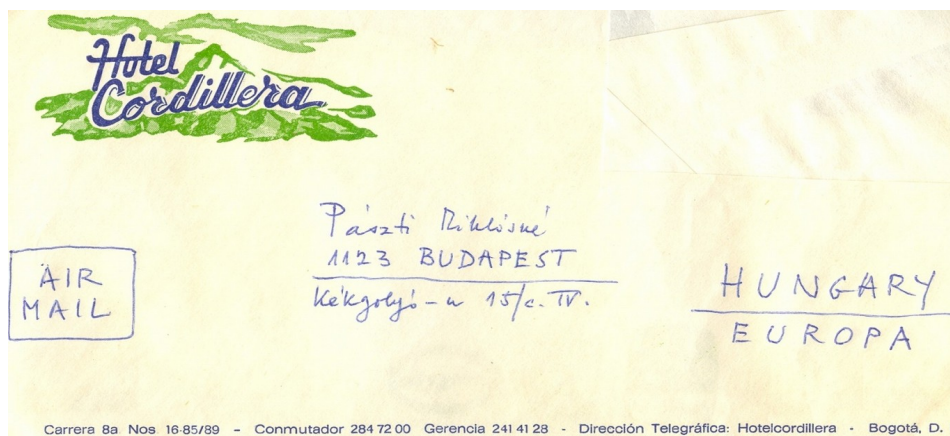 Hotel
Cordillera
Pászti Miklósné
1123 BUDAPEST
Kékgolyó-u 15/c. IV.
AIR
MAIL
HUNGARY
EUROPA
Carrera 8a. Nos. 16-85/89 - Conmutador 284 72 00 Gerencia 241 41 28 - Dirección Telegráfica: Hotelcordillera - Bogotá, D.